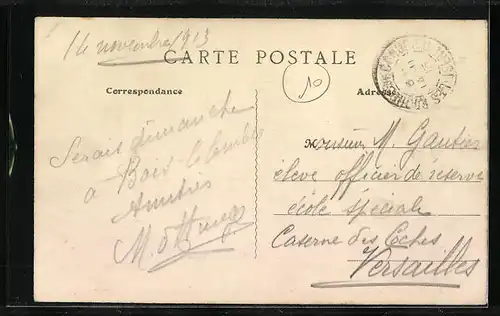 14 novembre 1913
CARTE POSTALE
10
Correspondance
Adresse
Serais dimanche
à Bois le
Amitiés
M.
Monsieur M. Gautier
élève officier de réserve
école spéciale
Caserne des
Versailles